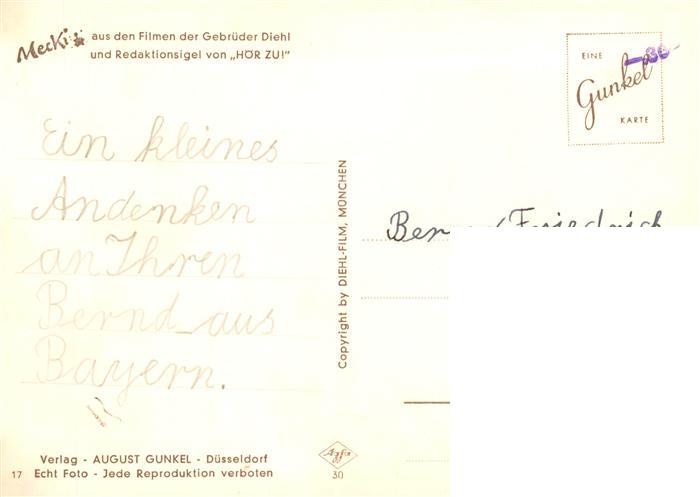 Mecki aus den Filmen der Gebrüder Diehl
und Redaktionsigel von „HÖR ZU!"
EINE
Gunkel
KARTE
-30-
Ein kleines
Andenken
an Ihren
Bernd aus
Bayern.
Copyright by DIEHL-FILM, MÜNCHEN
Friedrich
Verlag - AUGUST GUNKEL - Düsseldorf
17 Echt Foto - Jede Reproduktion verboten
Agfa
30